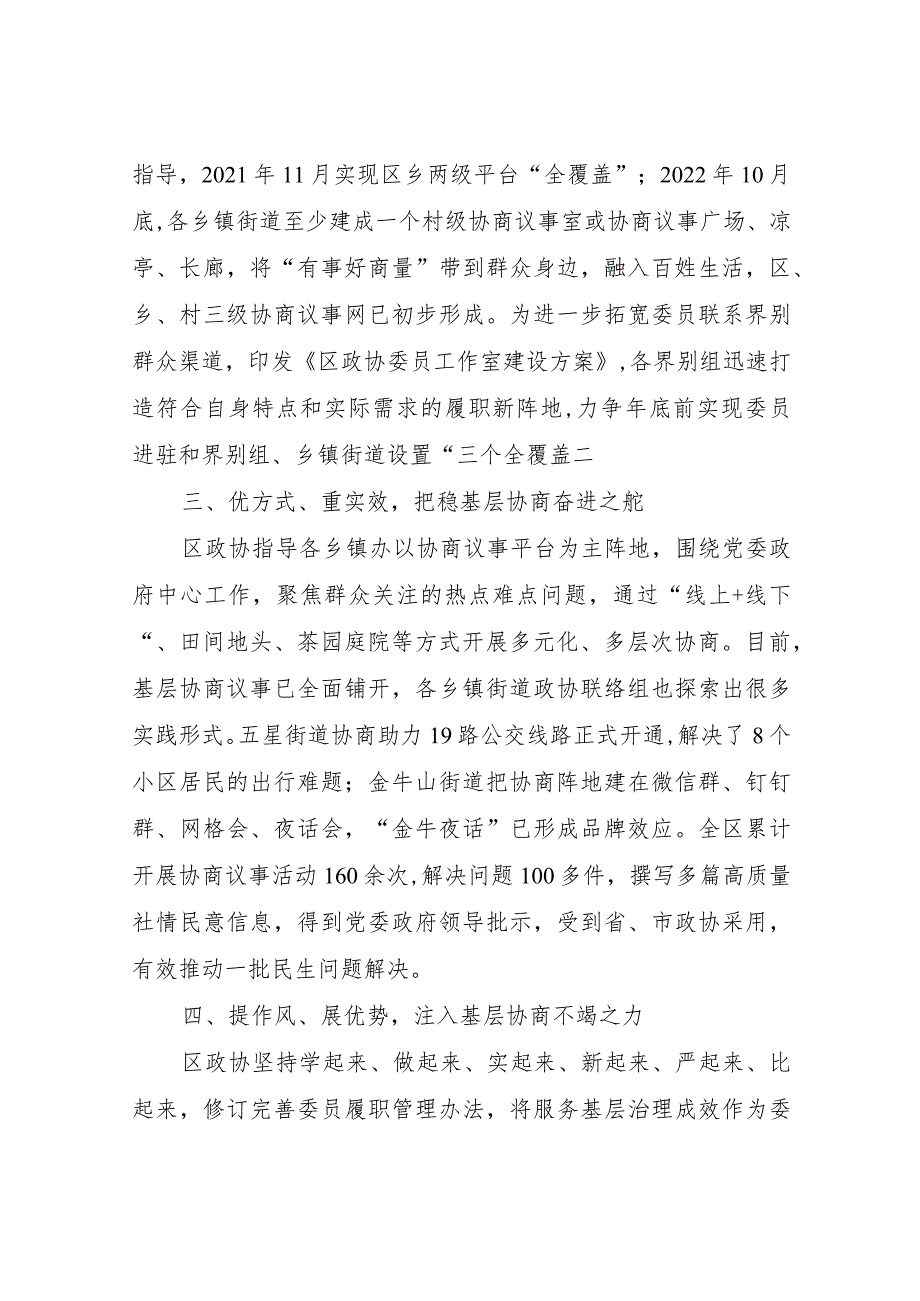 指导，2021年11月实现区乡两级平台“全覆盖”；2022年10月
底,各乡镇街道至少建成一个村级协商议事室或协商议事广场、凉
亭、长廊，将“有事好商量”带到群众身边，融入百姓生活，区、
乡、村三级协商议事网已初步形成。为进一步拓宽委员联系界别
群众渠道，印发《区政协委员工作室建设方案》,各界别组迅速打
造符合自身特点和实际需求的履职新阵地,力争年底前实现委员
进驻和界别组、乡镇街道设置“三个全覆盖二
三、优方式、重实效，把稳基层协商奋进之舵
区政协指导各乡镇办以协商议事平台为主阵地，围绕党委政
府中心工作，聚焦群众关注的热点难点问题，通过“线上+线下
“、田间地头、茶园庭院等方式开展多元化、多层次协商。目前,
基层协商议事已全面铺开，各乡镇街道政协联络组也探索出很多
实践形式。五星街道协商助力19路公交线路正式开通,解决了8个
小区居民的出行难题；金牛山街道把协商阵地建在微信群、钉钉
群、网格会、夜话会，“金牛夜话”已形成品牌效应。全区累计
开展协商议事活动160余次,解决问题100多件，撰写多篇高质量
社情民意信息，得到党委政府领导批示，受到省、市政协采用，
有效推动一批民生问题解决。
四、提作风、展优势，注入基层协商不竭之力
区政协坚持学起来、做起来、实起来、新起来、严起来、比
起来，修订完善委员履职管理办法，将服务基层治理成效作为委